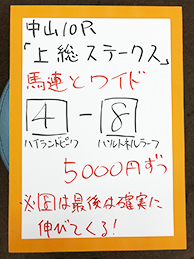 中山10R
「上総ステークス」
馬連とワイド
4-8
ハイランドピーク
ハットルネルラーフ
5000円ずつ
※④は最後は確実に
伸びてくる!